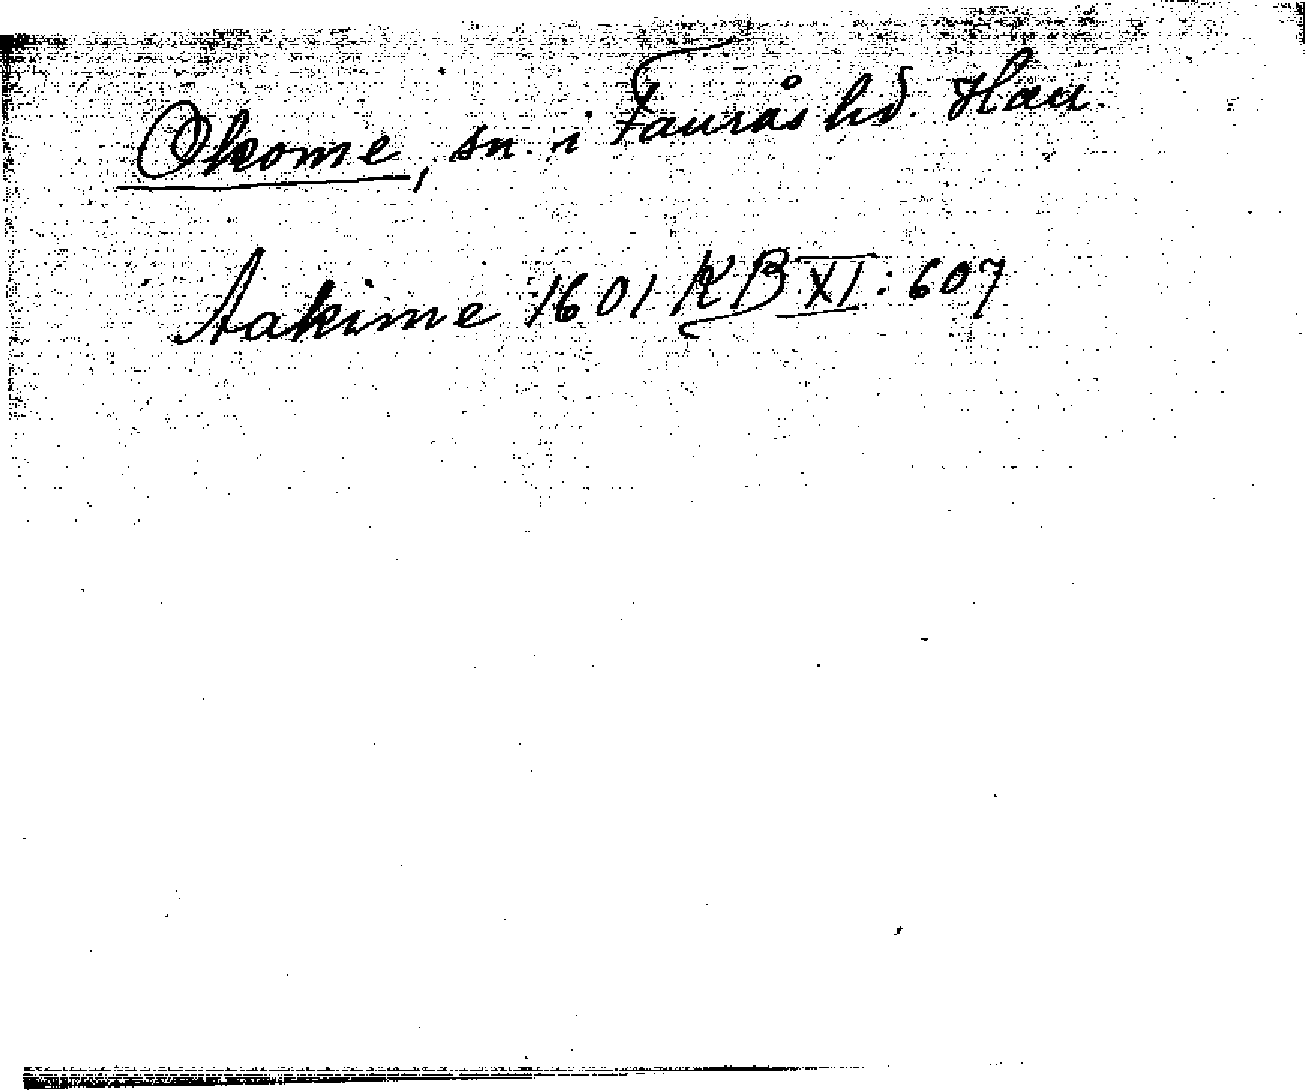 Okome, sn. i Faurås hd. Hall
Aakime 1601 KB XI: 607